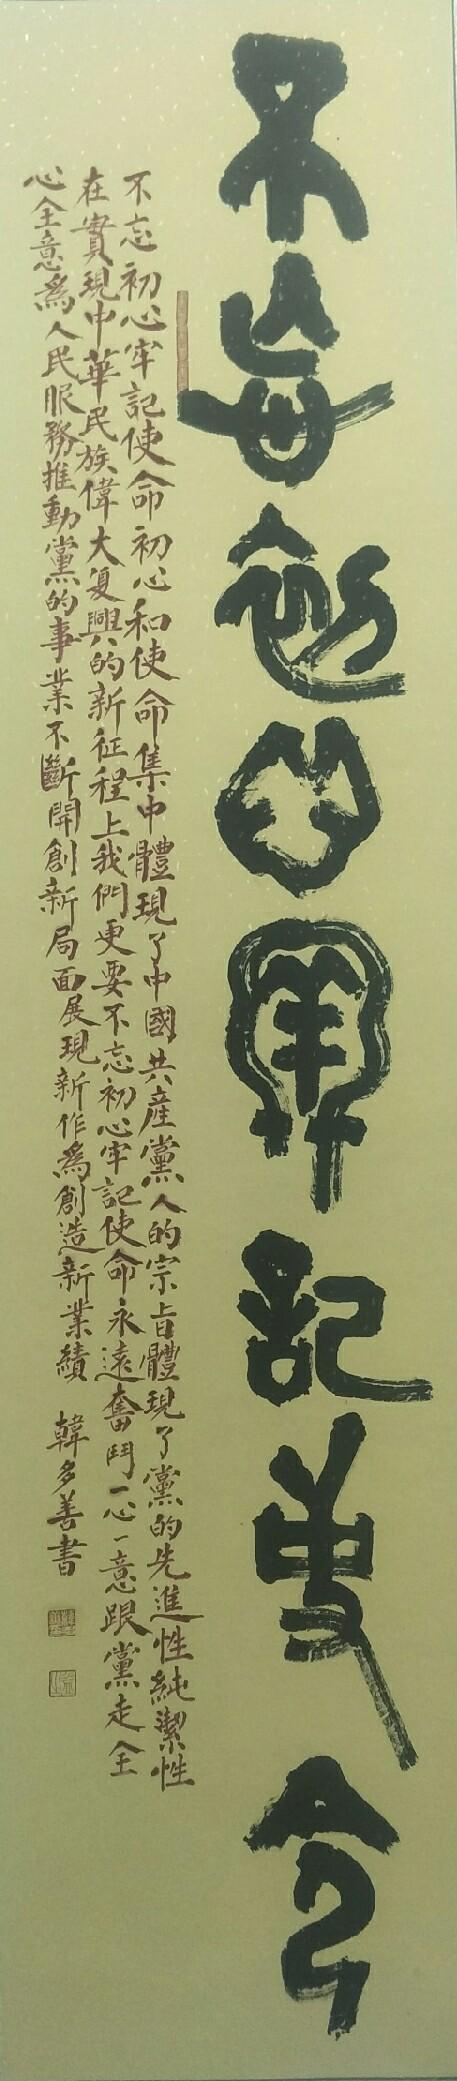 不忘初心牢記使命
不忘初心牢記使命初心和使命集中體現了中國共産黨人的宗旨體現了黨的先進性純潔性
在實現中華民族偉大复興的新征程上我們更要不忘初心牢記使命永遠奮鬥一心一意跟黨走全
心全意爲人民服務推動黨的事業不斷開創新局面展現新作爲創造新業績 韓多善書